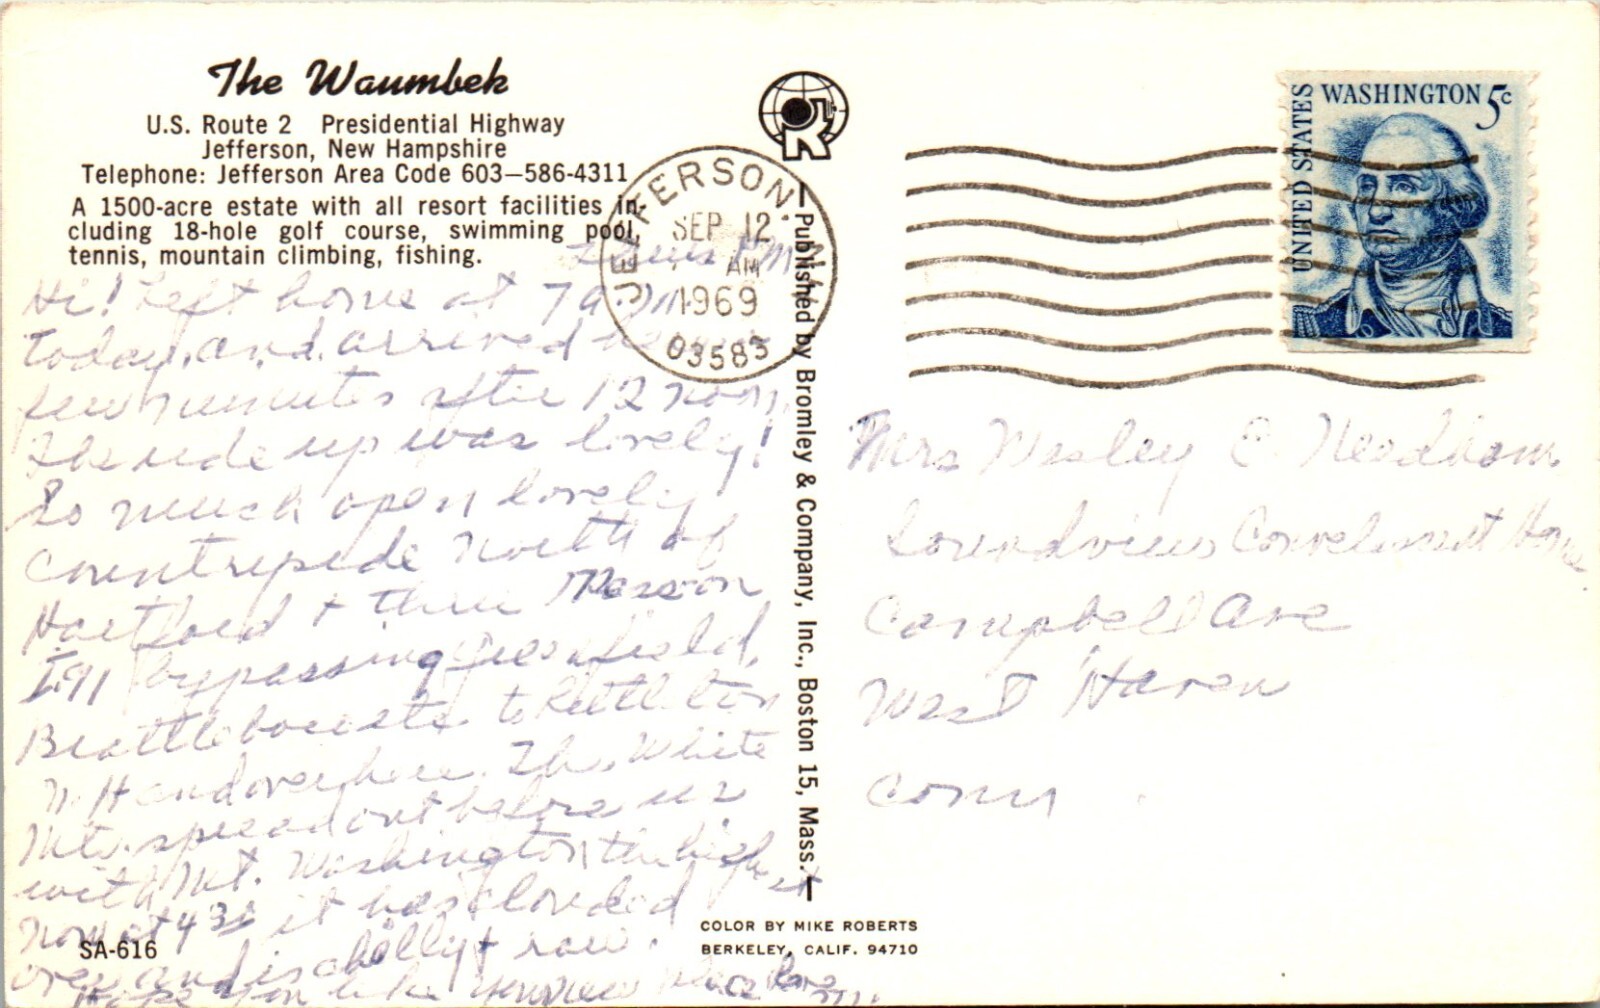 The Waumbek
U.S. Route 2 Presidential Highway
Jefferson, New Hampshire
Telephone: Jefferson Area Code 603—586-4311
A 1500-acre estate with all resort facilities in-
cluding 18-hole golf course, swimming pool,
tennis, mountain climbing, fishing.
Hi! Left home at 7 a.m.
today, and arrived
few minutes after 12 noon,
The ride up was lovely!
So much open lovely
countryside north of
Hartford & thru
I.91 bypassing Greenfield,
Brattleboro to
N.H and over here. The White
Mts. spread out before us
with Mt. Washington the highest
Now at 4 30 it has clouded
over and is chilly & raw.
Hope you like your new place
SA-616
R
Published by Bromley & Company, Inc., Boston 15, Mass.
COLOR BY MIKE ROBERTS
BERKELEY, CALIF. 94710
JEFFERSON, N
SEP 12
AM
1969
03583
UNITED STATES
WASHINGTON 5c
Mrs Wesley E Needham
Soundview Convelesant Home
Campbell Ave
West Haven
Conn